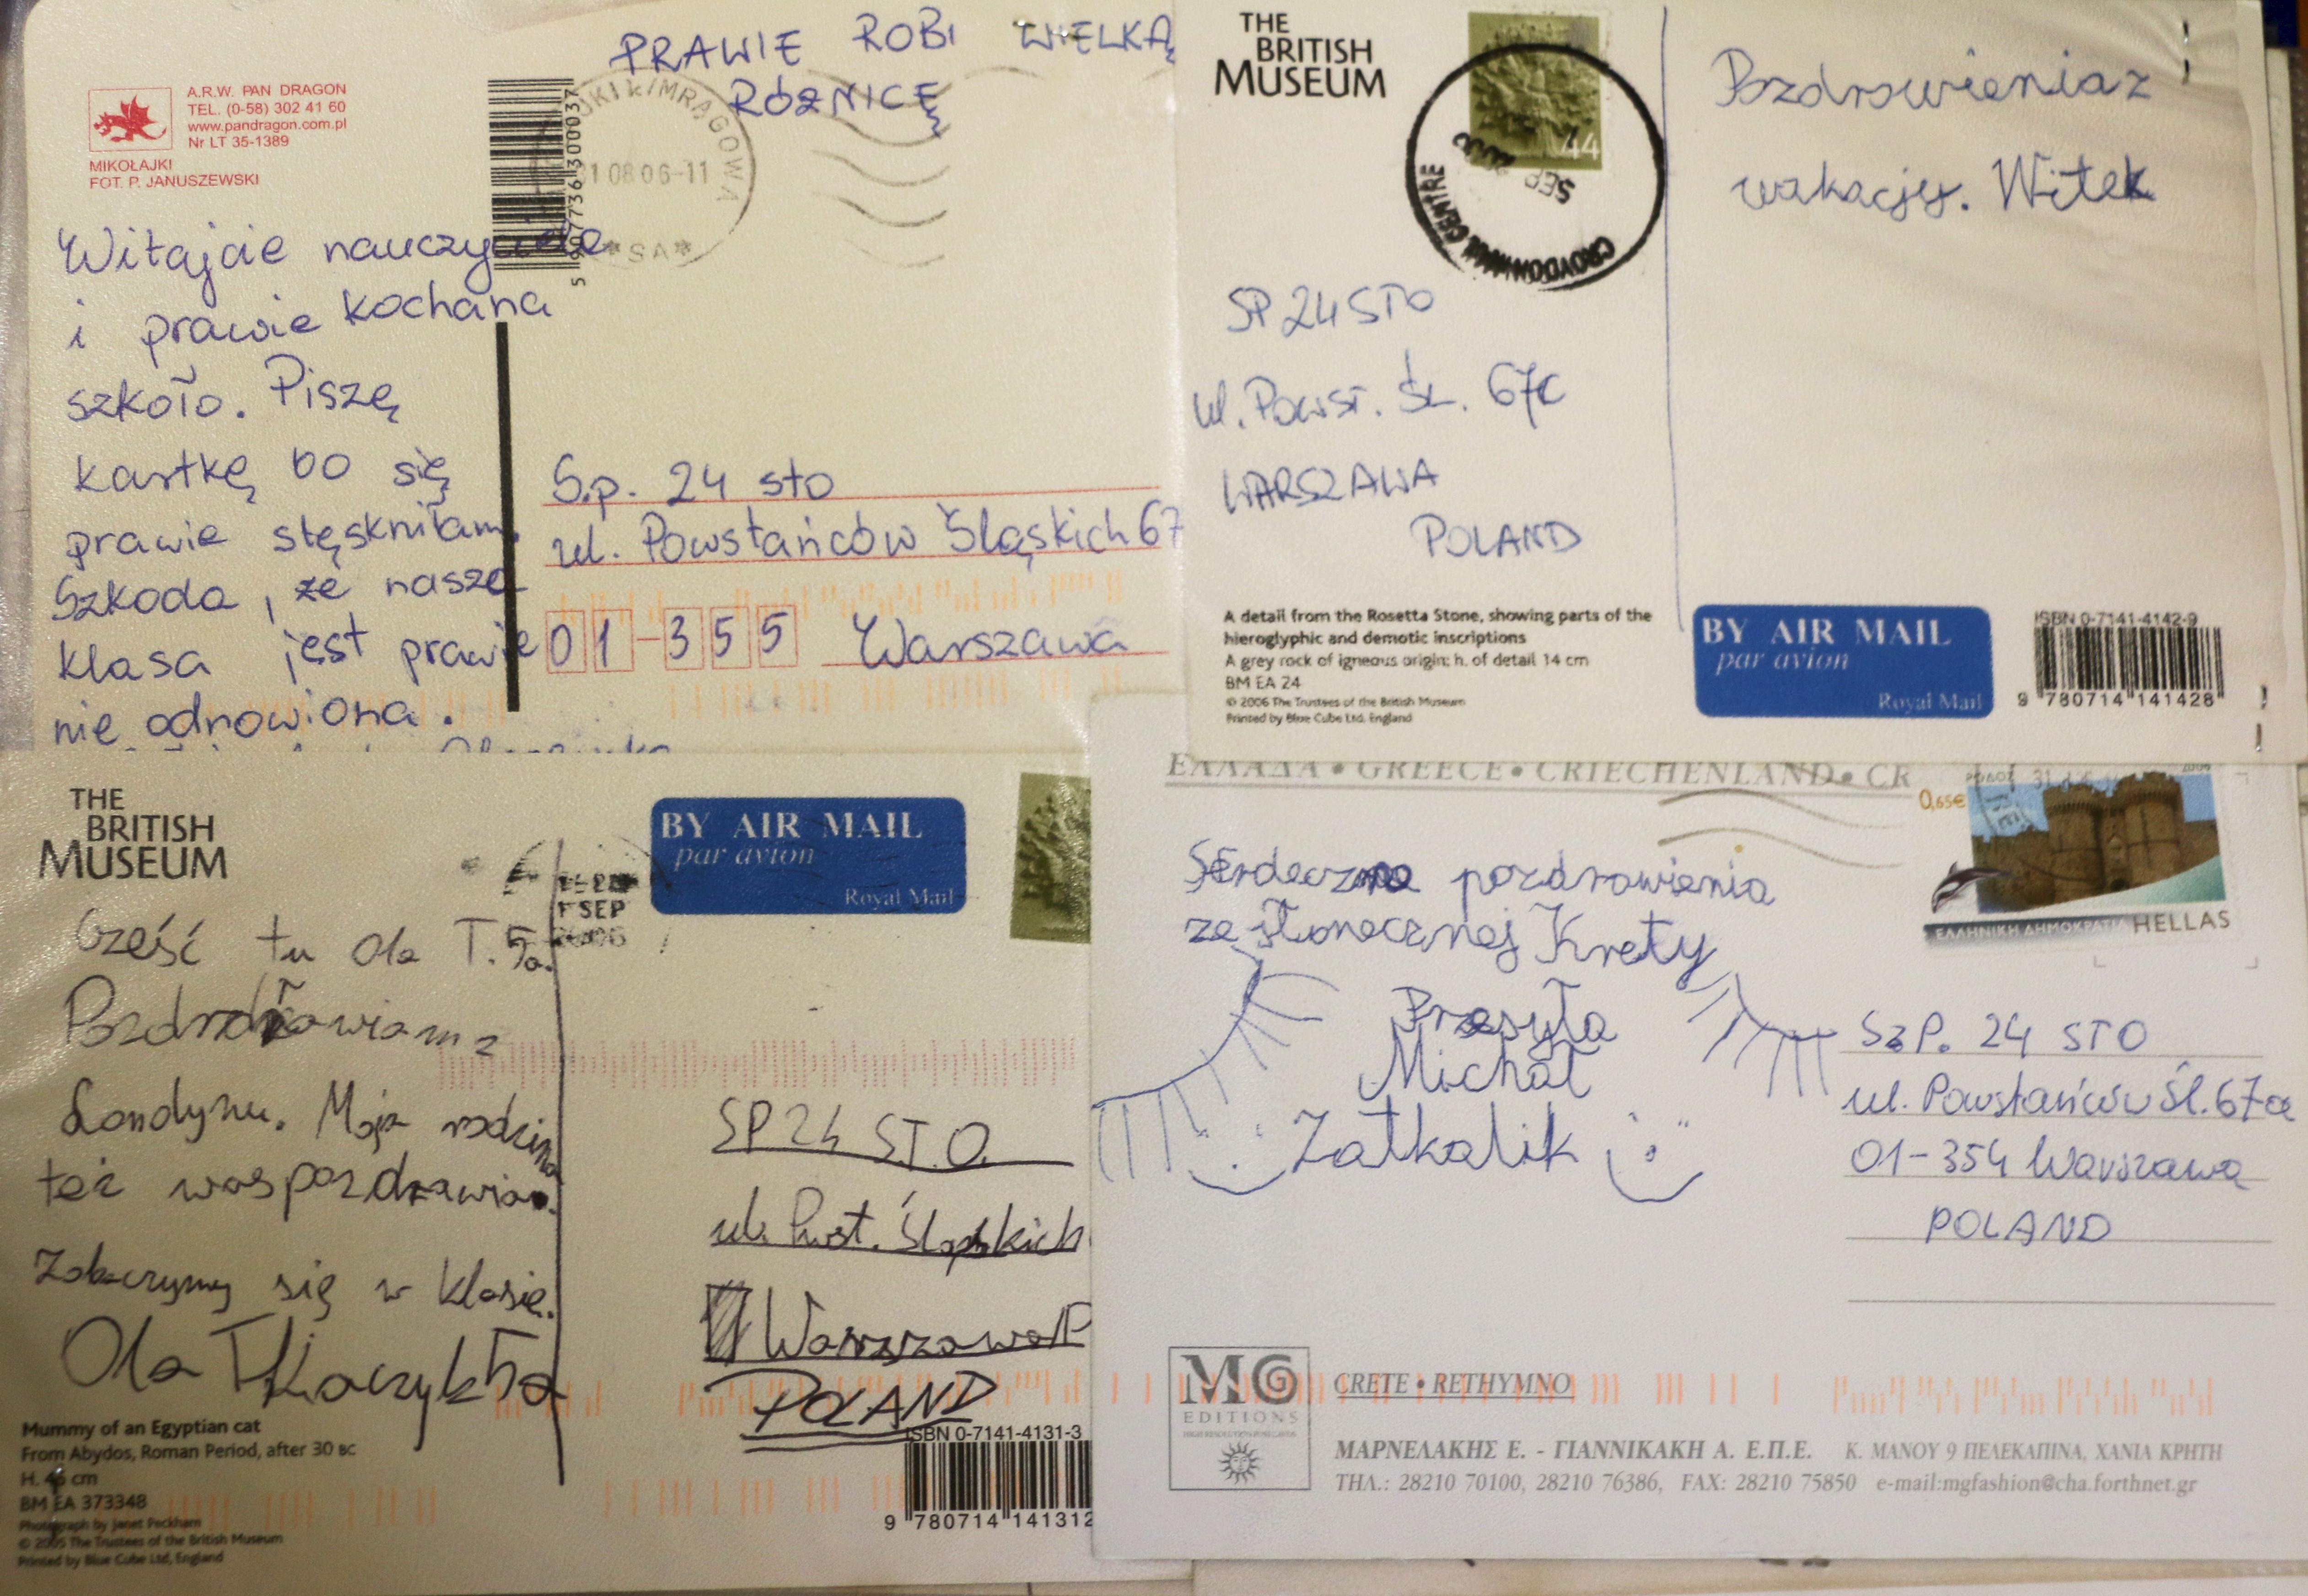 PRAWIE ROBI WIELKĄ
RÓŻNICĘ
A.R.W. PAN DRAGON
TEL. (0-58) 302 41 60
www.pandragon.com.pl
Nr LT 35-1389
MIKOŁAJKI
FOT. P. JANUSZEWSKI
5 907736 300037
K/MRĄGOWA
01 08 06-11
Witajcie nauczyciele
i prawie kochana
szkoło. Piszę
kartkę bo się
prawie stęskniłam.
Szkoda, że nasza
klasa jest prawie
nie odnowiona.
S.p. 24 sto
ul. Powstańców Śląskich 67
01-355 Warszawa
THE
BRITISH
MUSEUM
44
SEP
CROYDON MAIL CENTRE
Pozdrowienia z
wakacjy. Witek
SP 24 STO
ul. Powst. Śl. 67C
WARSZAWA
POLAND
A detail from the Rosetta Stone, showing parts of the
hieroglyphic and demotic inscriptions
A grey rock of igneous origin; h. of detail 14 cm
BM EA 24
© 2006 The Trustees of the British Museum
Printed by Blue Cube Ltd, England
BY AIR MAIL
par avion
Royal Mail
ISBN 0-7141-4142-9
9 780714 141428
THE
BRITISH
MUSEUM
BY AIR MAIL
par avion
Royal Mail
SEP
2006
Cześć tu Ola T. 5a.
Pozdrawiam z
Londynu. Moja rodzina
też was pozdrawia.
Zobaczymy się w klasie.
Ola Tkaczyk 5a
SP 24 S.T.O.
ul. Pwst. Śląskich
Warszawa
POLAND
Mummy of an Egyptian cat
From Abydos, Roman Period, after 30 BC
H. 46 cm
BM EA 373348
Photograph by Janet Peckham
© 2005 The Trustees of the British Museum
Printed by Blue Cube Ltd, England
ISBN 0-7141-4131-3
9 780714 141312
ΕΛΛΑΔΑ • GREECE • CRIECHENLAND • GR
0,65€
ΕΛΛΗΝΙΚΗ ΔΗΜΟΚΡΑΤΙΑ HELLAS
Serdeczne pozdrowienia
ze słonecznej Krety
Przesyła
Michał
Zatkalik
SzP. 24 STO
ul. Powstańców Śl. 67a
01-354 Warszawa
POLAND
MG
EDITIONS
CRETE • RETHYMNO
ΜΑΡΝΕΛΑΚΗΣ Ε. - ΓΙΑΝΝΙΚΑΚΗ Α. Ε.Π.Ε. Κ. ΜΑΝΟΥ 9 ΠΕΛΕΚΑΠΙΝΑ, ΧΑΝΙΑ ΚΡΗΤΗ
ΤΗΛ.: 28210 70100, 28210 76386, FAX: 28210 75850 e-mail:mgfashion@cha.forthnet.gr